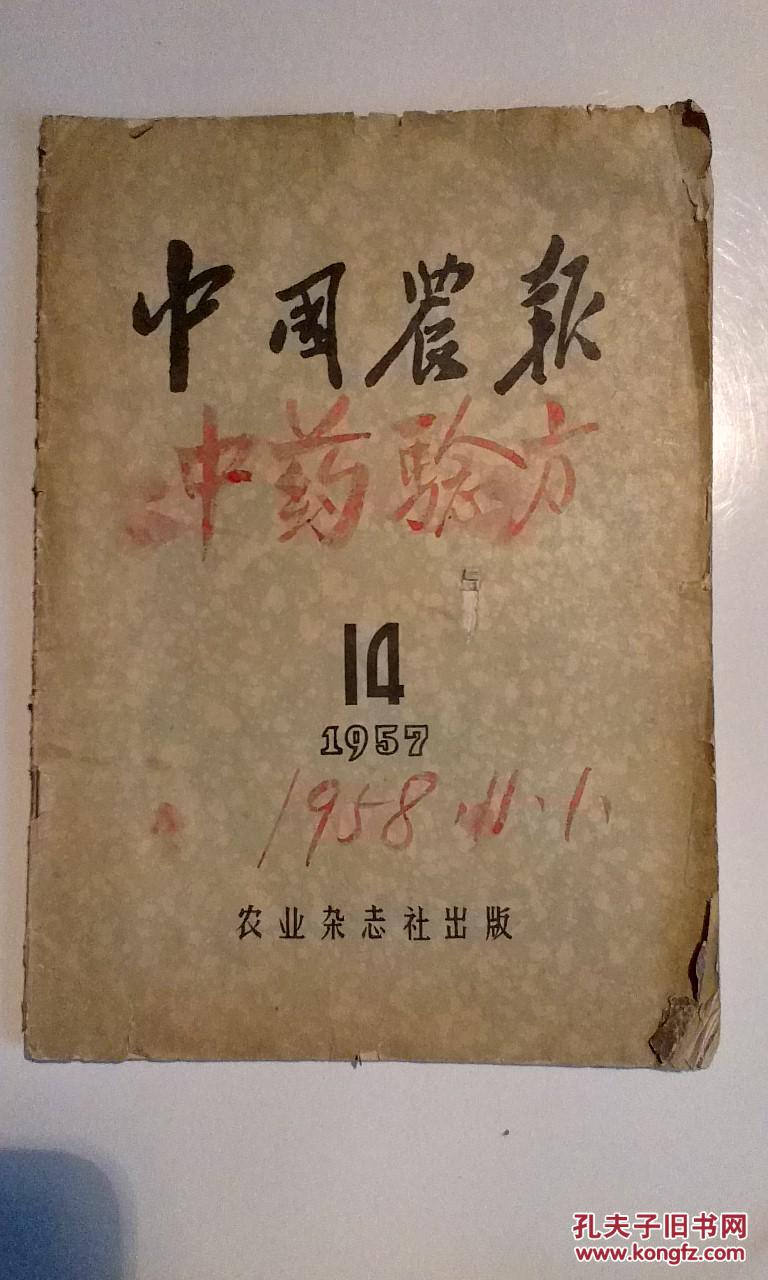 中国農報
中药验方
14
1957
1958.11.1.
农业杂志社出版
孔夫子旧书网
www.kongfz.com